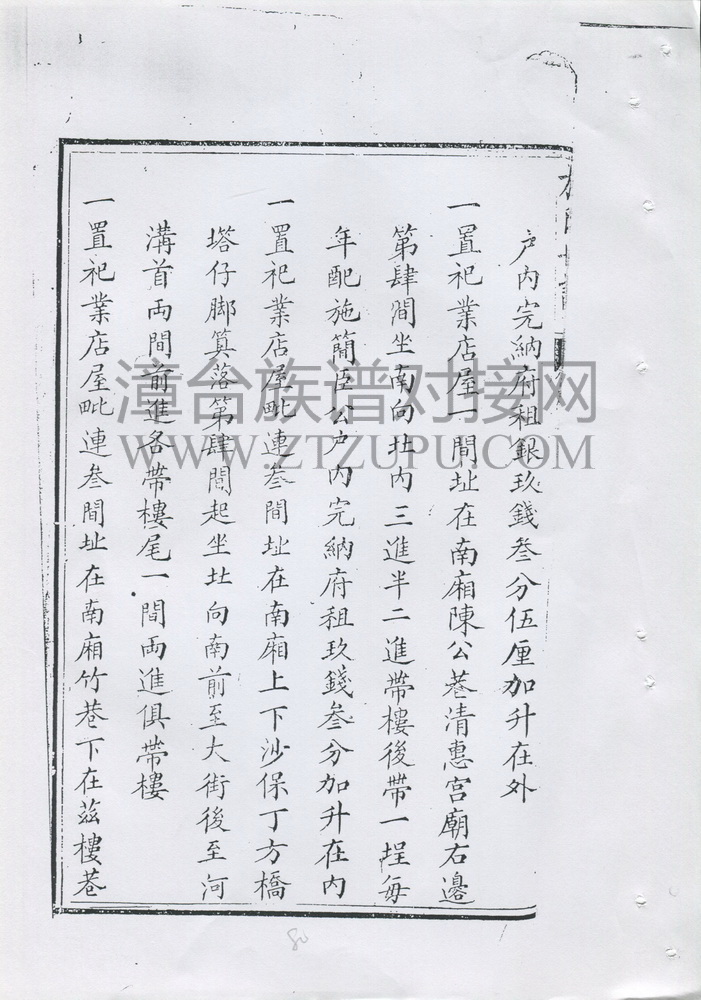 户内完納府租銀玖錢叁分伍厘加升在外
一置祀業店屋一間址在南廂陳公巷清惠宮廟右邊
第肆間坐南向北内三進半二進帶樓後帶一埕每
年配施簡臣公户内完納府租玖錢叁分加升在内
一置祀業店屋毗連叁間址在南廂上下沙保丁方橋
塔仔脚算落第肆間起坐北向南前至大街後至河
溝首両間前進各帶樓尾一間両進俱帶樓
一置祀業店屋毗連叁間址在南廂竹巷下在兹樓巷
漳台族谱对接网
WWW.ZTZUPU.COM
80